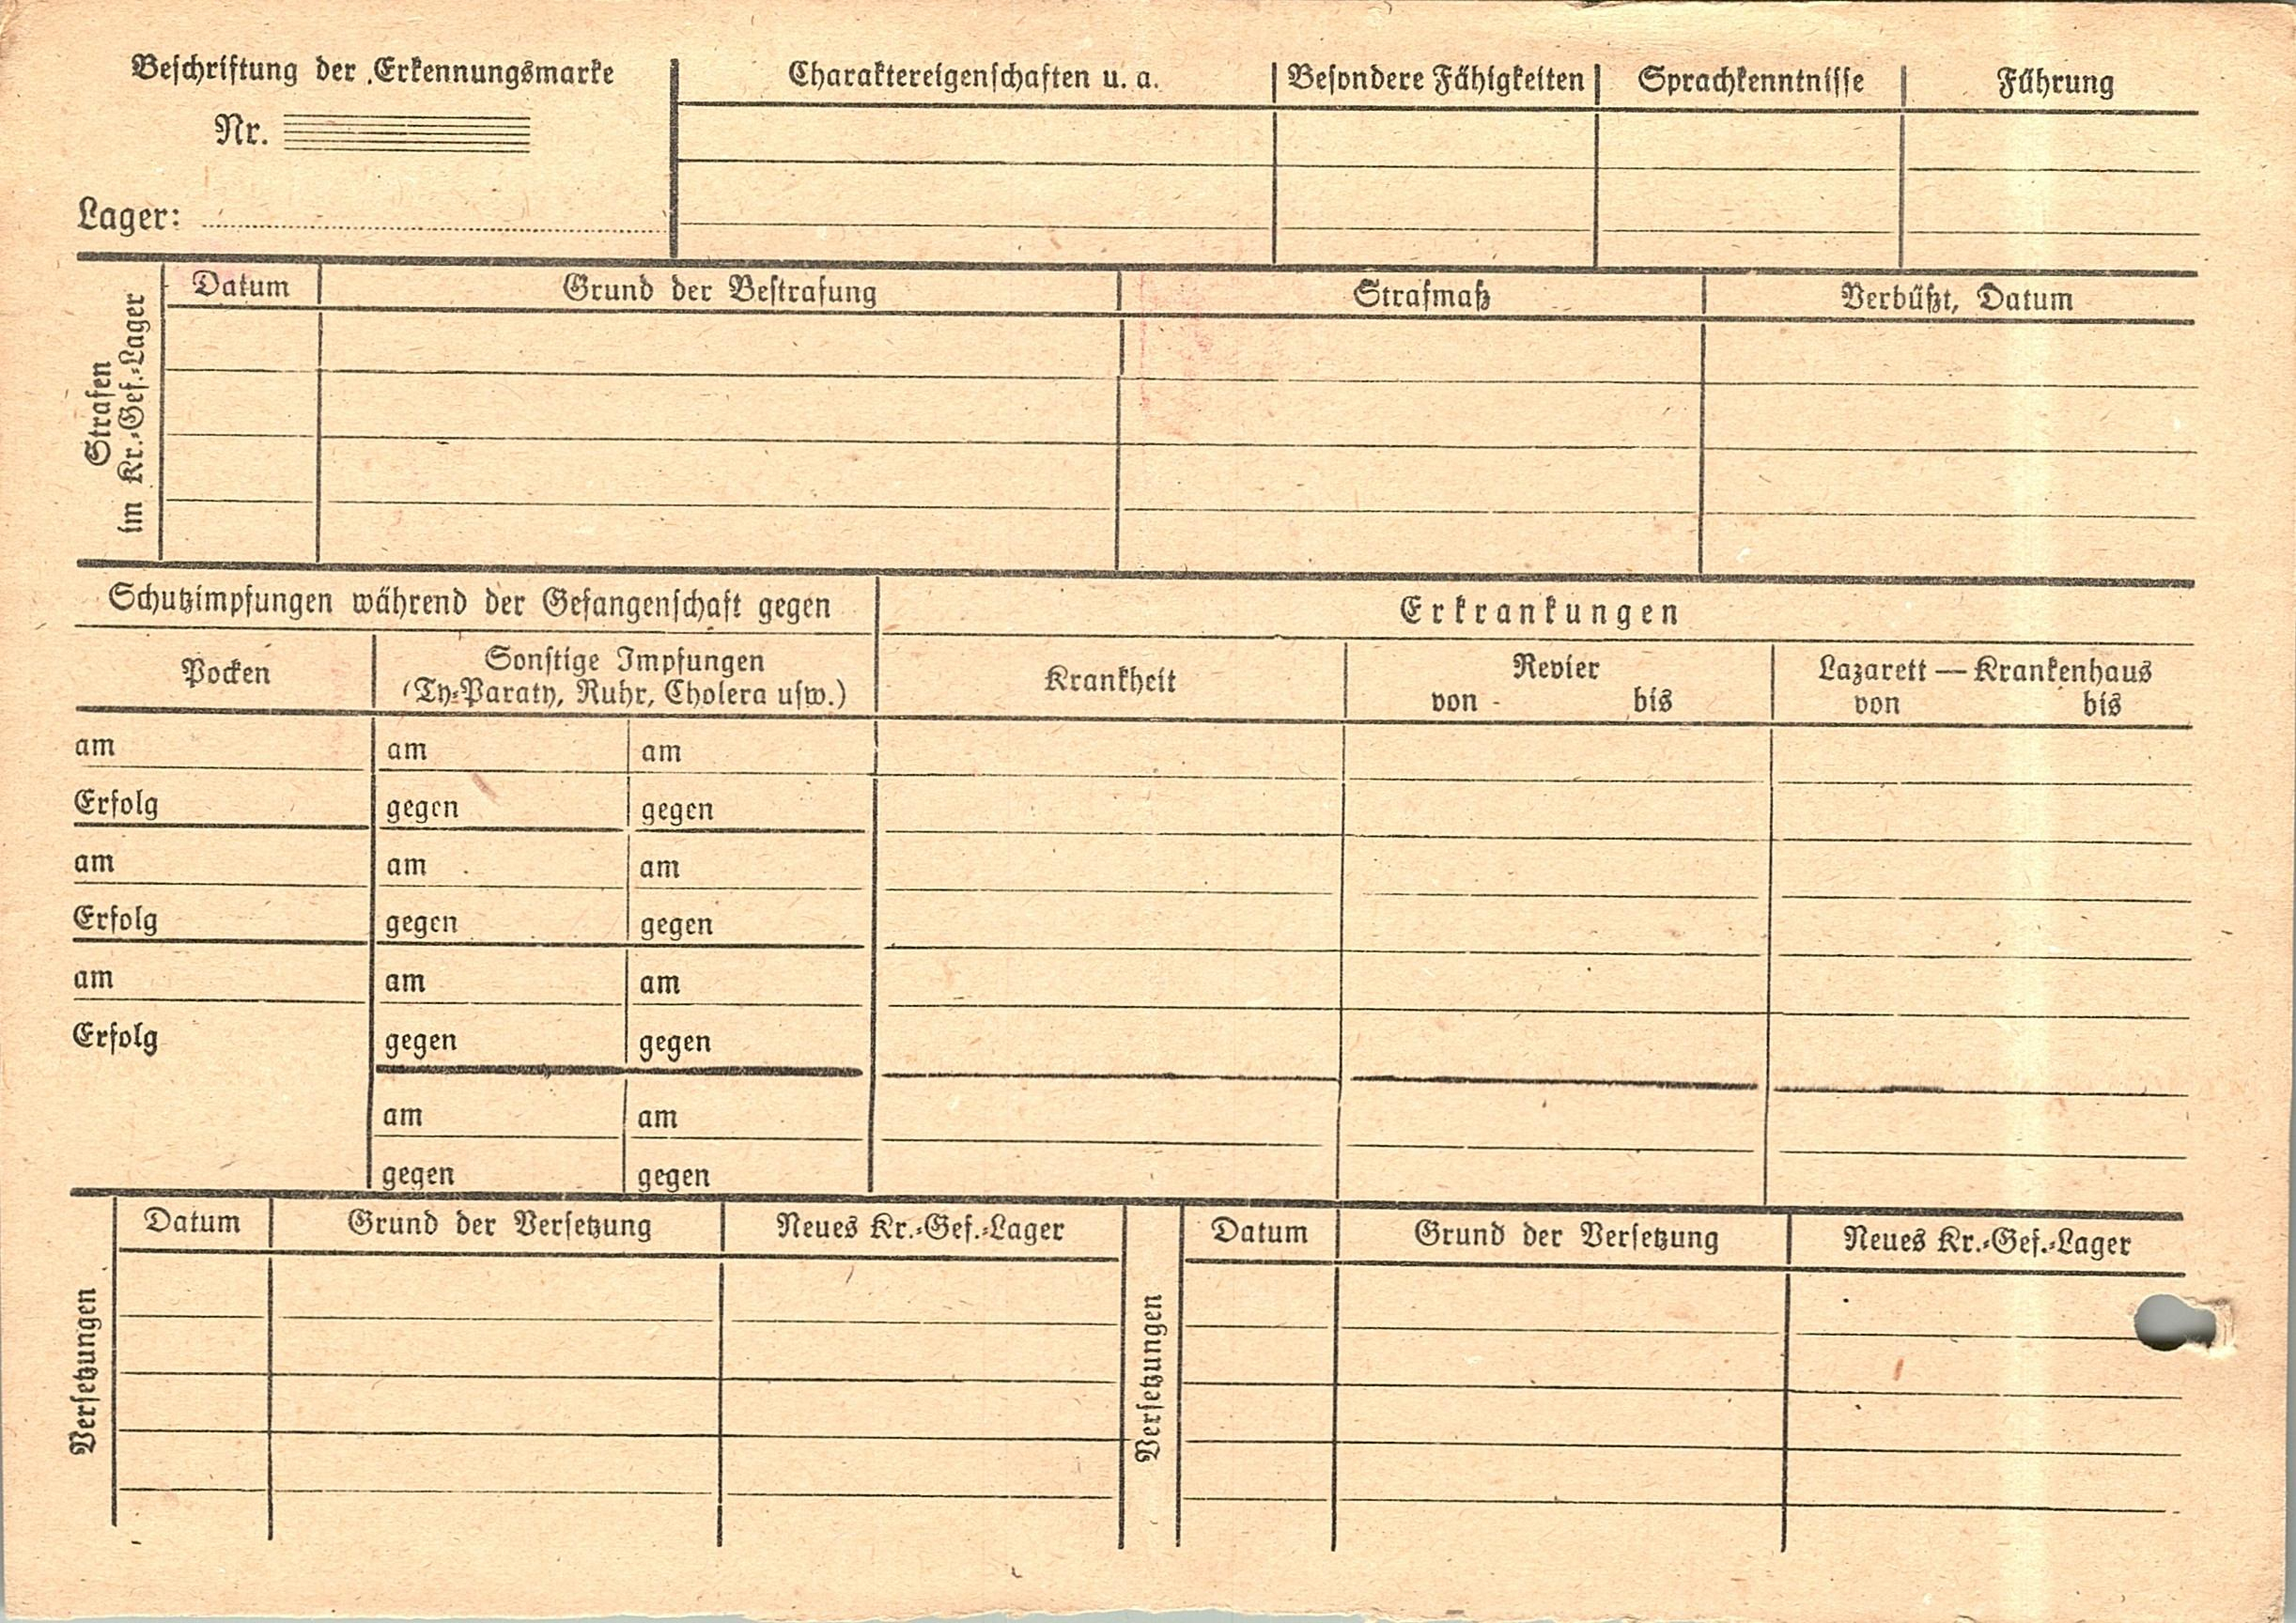 Beschriftung der Erkennungsmarke
Nr.
Lager:
Charaktereigenschaften u. a. Besondere Fähigkeiten Sprachkenntnisse Führung
Strafen
im Kr.-Gef.-Lager
Datum Grund der Bestrafung Strafmaß Verbüßt, Datum
Schutzimpfungen während der Gefangenschaft gegen
Erkrankungen
Pocken
Sonstige Impfungen
(Ty-Paraty, Ruhr, Cholera usw.)
Krankheit
Revier
von bis
Lazarett — Krankenhaus
von bis
am am am
Erfolg gegen gegen
am am am
Erfolg gegen gegen
am am am
Erfolg gegen gegen
am am
gegen gegen
Versetzungen
Datum Grund der Versetzung Neues Kr.-Gef.-Lager
Versetzungen
Datum Grund der Versetzung Neues Kr.-Gef.-Lager